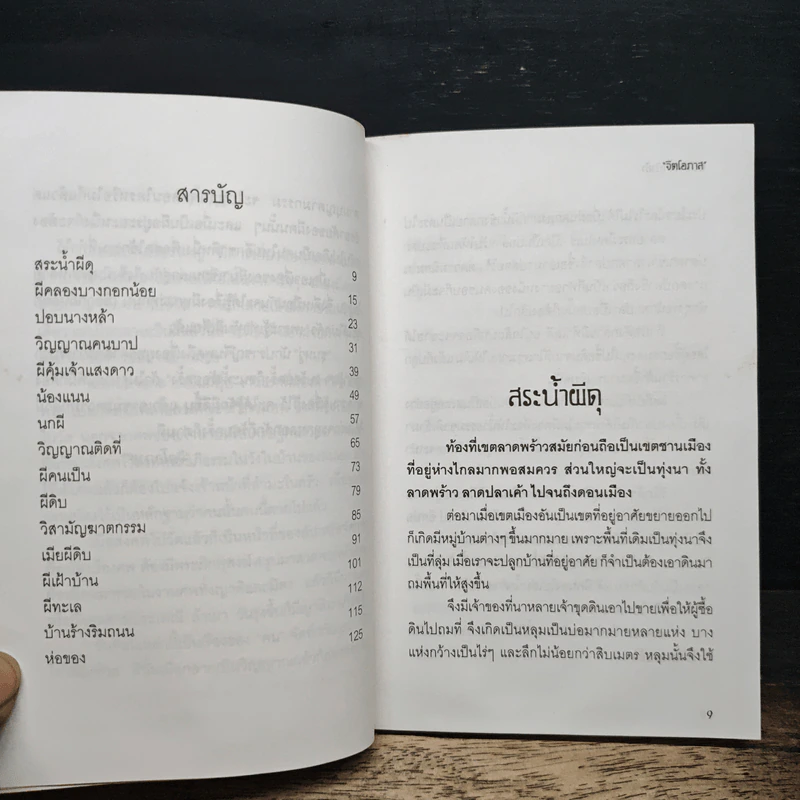 สารบัญ
สระน้ำผีดุ 9
ผีคลองบางกอกน้อย 15
ปอบนางหล้า 23
วิญญาณคนบาป 31
ผีคุ้มเจ้าแสงดาว 39
น้องแนน 49
นกผี 57
วิญญาณติดที่ 65
ผีคนเป็น 73
ผีดิบ 79
วิสามัญฆาตกรรม 85
เมียผีดิบ 91
ผีเฝ้าบ้าน 101
ผีทะเล 112
บ้านร้างริมถนน 115
ห่อของ 125
"จิตโอภาส"
สระน้ำผีดุ
ท้องที่เขตลาดพร้าวสมัยก่อนถือเป็นเขตชานเมือง
ที่อยู่ห่างไกลมากพอสมควร ส่วนใหญ่จะเป็นทุ่งนา ทั้ง
ลาดพร้าว ลาดปลาเค้า ไปจนถึงดอนเมือง
ต่อมาเมื่อเขตเมืองอันเป็นเขตที่อยู่อาศัยขยายออกไป
ก็เกิดมีหมู่บ้านต่างๆ ขึ้นมากมาย เพราะพื้นที่เดิมเป็นทุ่งนาจึง
เป็นที่ลุ่ม เมื่อเราจะปลูกบ้านที่อยู่อาศัย ก็จำเป็นต้องเอาดินมา
ถมพื้นที่ให้สูงขึ้น
จึงมีเจ้าของที่นาหลายเจ้าขุดดินเอาไปขายเพื่อให้ผู้ซื้อ
ดินไปถมที่ จึงเกิดเป็นหลุมเป็นบ่อมากมายหลายแห่ง บาง
แห่งกว้างเป็นไร่ๆ และลึกไม่น้อยกว่าสิบเมตร หลุมนั้นจึงใช้
9